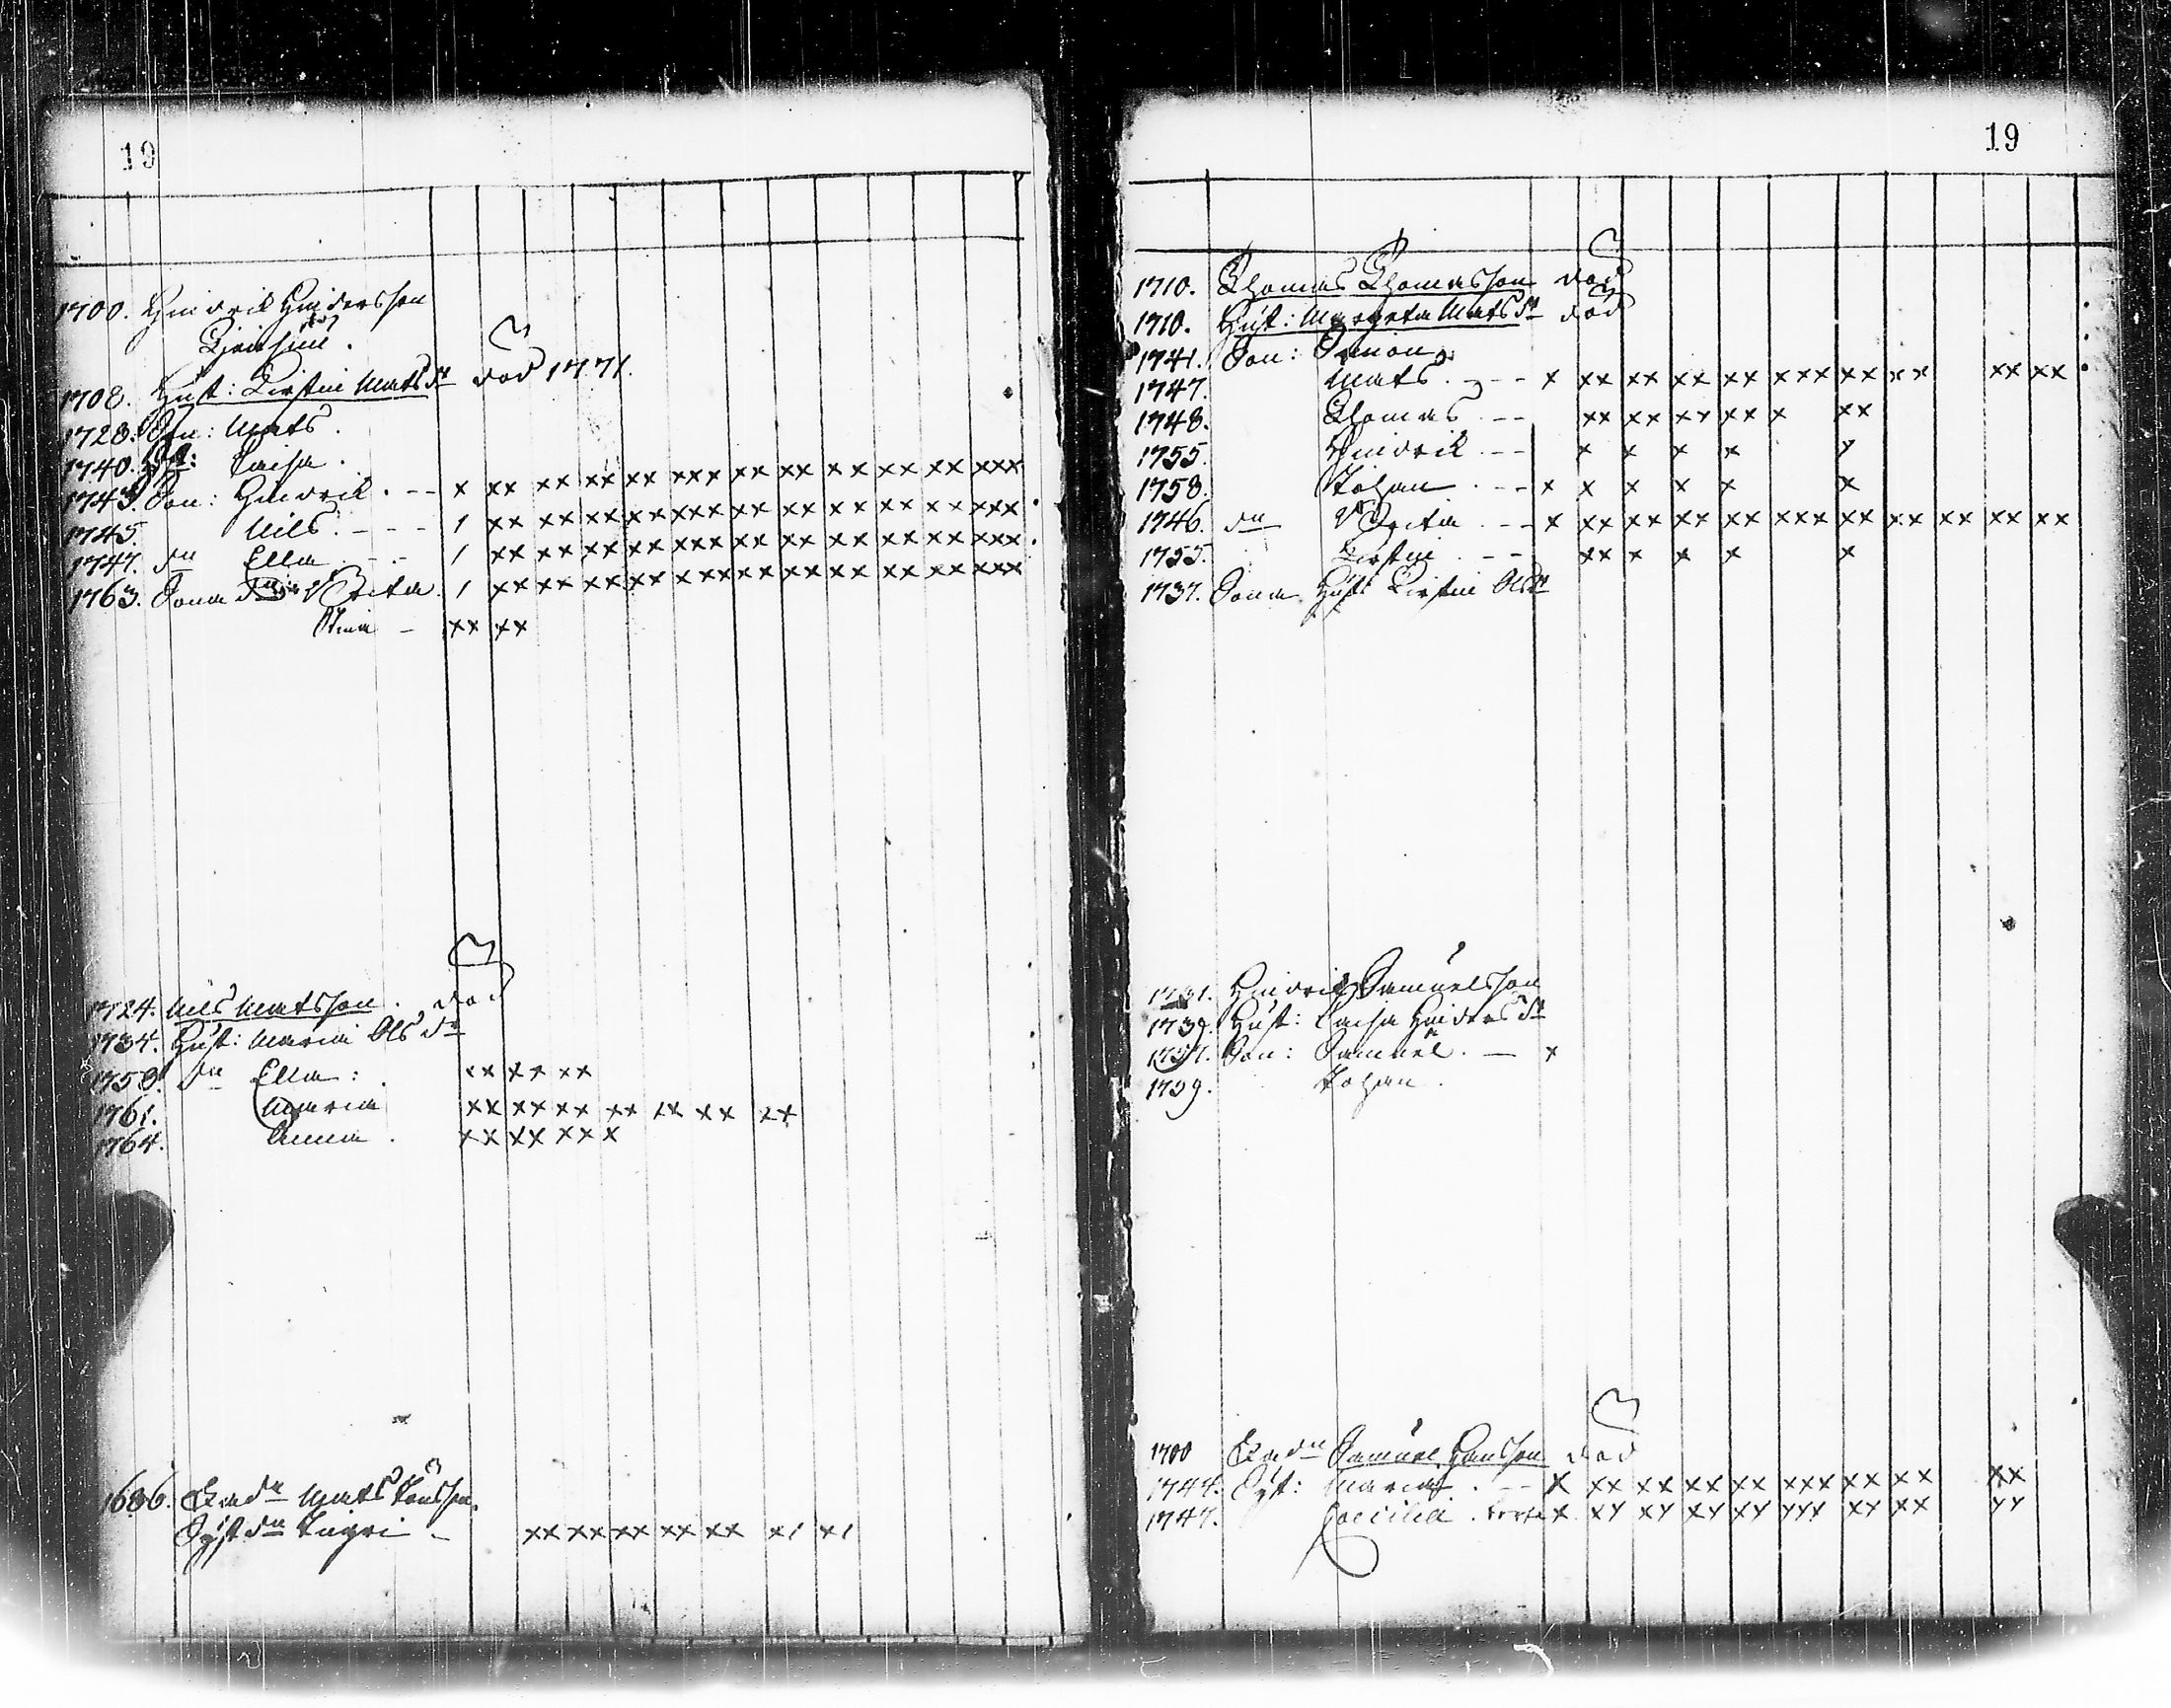 19
1700. Hindrik Hindersson
1708. Hust: Kirstin Mats dr död 1771.
1728. Son: Mats.
1740. dr: Caisa.
1743. Son: Hindrik. -- x xx xx xx xx xxx xx xx xx xx xx xxx
1745. Nils. --- 1 xx xx xx xx xxx xx xx xx xx xx xxx
1747. dr Ella -- 1 xx xx xx xx xxx xx xx xx xx xx xxx
1763. Sona dr Brita. 1 xx xx xx xx xxx xx xx xx xx xx xxx
Stina - xx xx
1724. Nils Matsson. död
1734. Hust: Maria Ols dr
1758. dr Ella: xx xx xx
1761. Maria xx xx xx xx xx xx xx
1764. Anna. xx xx xxx
1686. Mats
Syst dr Ingri - xx xx xx xx xx x1 x1
19
1710. Thomas Thomasson död
1710. Hust: Margeta Mats dr död
1741. Son: Simon
1747. Mats. --- x xx xx xx xx xxx xx xx xx xx
1748. Thomas -- xx xx xx xx x xx
1755. Hindrik -- x x x x x
1758. Johan -- x x x x x x
1746. dr Brita -- x xx xx xx xx xxx xx xx xx xx xx
1755. Kirstin -- xx x x x x
1737. Sona Hust Kirstin Ols dr
1731. Hindrik Samuelsson
1739. Hust: Caisa Hinders dr
1757. Son: Samuel. - x
1759. Johan.
1700 Samuel Hansson död
1744. Syst: Maria. -- x xx xx xx xx xxx xx xx xx
1747. Caecilia. x xx xx xx xx xxx xx xx xx